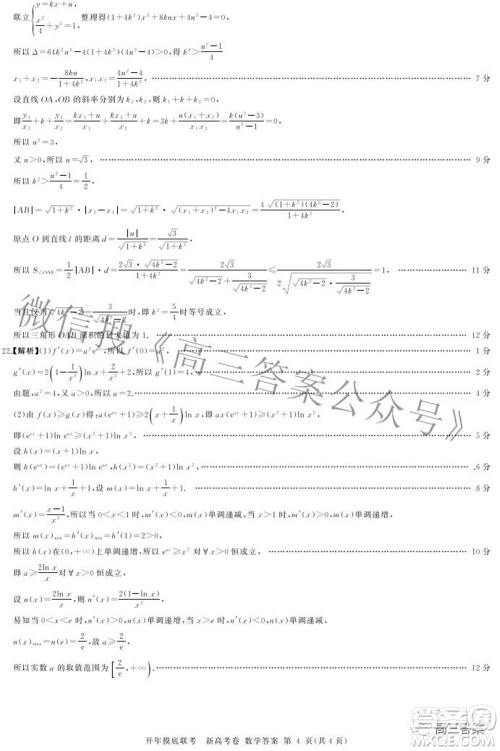 联立{y=kx+n, x²/4+y²=1, 整理得(1+4k²)x²+8knx+4n²-4=0,
所以Δ=64k²n²-4(1+4k²)(4n²-4)>0,得k²>(n²-1)/4,
x₁+x₂=-8kn/(1+4k²),x₁x₂=(4n²-4)/(1+4k²), 7分
设直线OA,OB的斜率分别为k₁,k₂,则k₁+k₂+k=0,
即y₁/x₁+y₂/x₂+k=(kx₁+n)/x₁+(kx₂+n)/x₂+k=3k+n(x₁+x₂)/(x₁x₂)=k(n²-3)/(n²-1)=0.
所以n²=3,
又n>0,所以n=√3. 9分
所以k²>(n²-1)/4=1/2,
|AB|=√(1+k²)·|x₁-x₂|=√(1+k²)·√((x₁+x₂)²-4x₁x₂)=4√((1+k²)(4k²-2))/(1+4k²).
原点O到直线l的距离d=|n|/√(1+k²)=√3/√(1+k²).
所以S△OAB=1/2|AB|·d=2√3·√(4k²-2)/(1+4k²)=2√3/(√(4k²-2)+3/√(4k²-2))≤2√3/(2√(√(4k²-2)·3/√(4k²-2)))=1, 11分
时,即k²=5/4时等号成立,
所以三角形OAB面积的最大值为1. 12分
22.【解析】(1)f′(x)=a²e 所以f′(0)=a², 1分
g′(x)=2(1-1/x²)ln x+2/x(x+1/x)+2,所以g′(1)=4, 2分
由题,a²=4,又a>0,所以a=2. 4分
(2)由f(x)≥g(x)得:a(eᵃˣ+1)≥2(x+1/x)ln x,
即(eᵃˣ+1)ln eᵃˣ≥(x²+1)ln x². 5分
设h(x)=(x+1)ln x,
则h(eᵃˣ)=(eᵃˣ+1)ln eᵃˣ,h(x²)=(x²+1)ln x². 6分
h′(x)=ln x+1/x+1,设m(x)=ln x+1/x+1. 8分
m′(x)=(x-1)/x²,所以当0<x<1时,m′(x)<0,m(x)单调递减,当x>1时,m′(x)>0,m(x)单调递增,
所以m(x)min=m(1)=2,所以h′(x)>0,
所以h(x)在(0,+∞)上单调递增,所以eᵃˣ≥x²对∀x>0恒成立. 10分
即a≥2ln x/x对∀x>0恒成立,
设n(x)=2ln x/x,则n′(x)=2(1-ln x)/x².
易知当0<x<e时,n′(x)>0,n(x)单调递增,当x>e时,n′(x)<0,n(x)单调递减,
n(x)max=n(e)=2/e,故a≥2/e.
所以实数a的取值范围为[2/e,+∞). 12分
开年摸底联考 新高考卷 数学答案 第4页(共4页)
微信搜《高三答案公众号》
高三答案